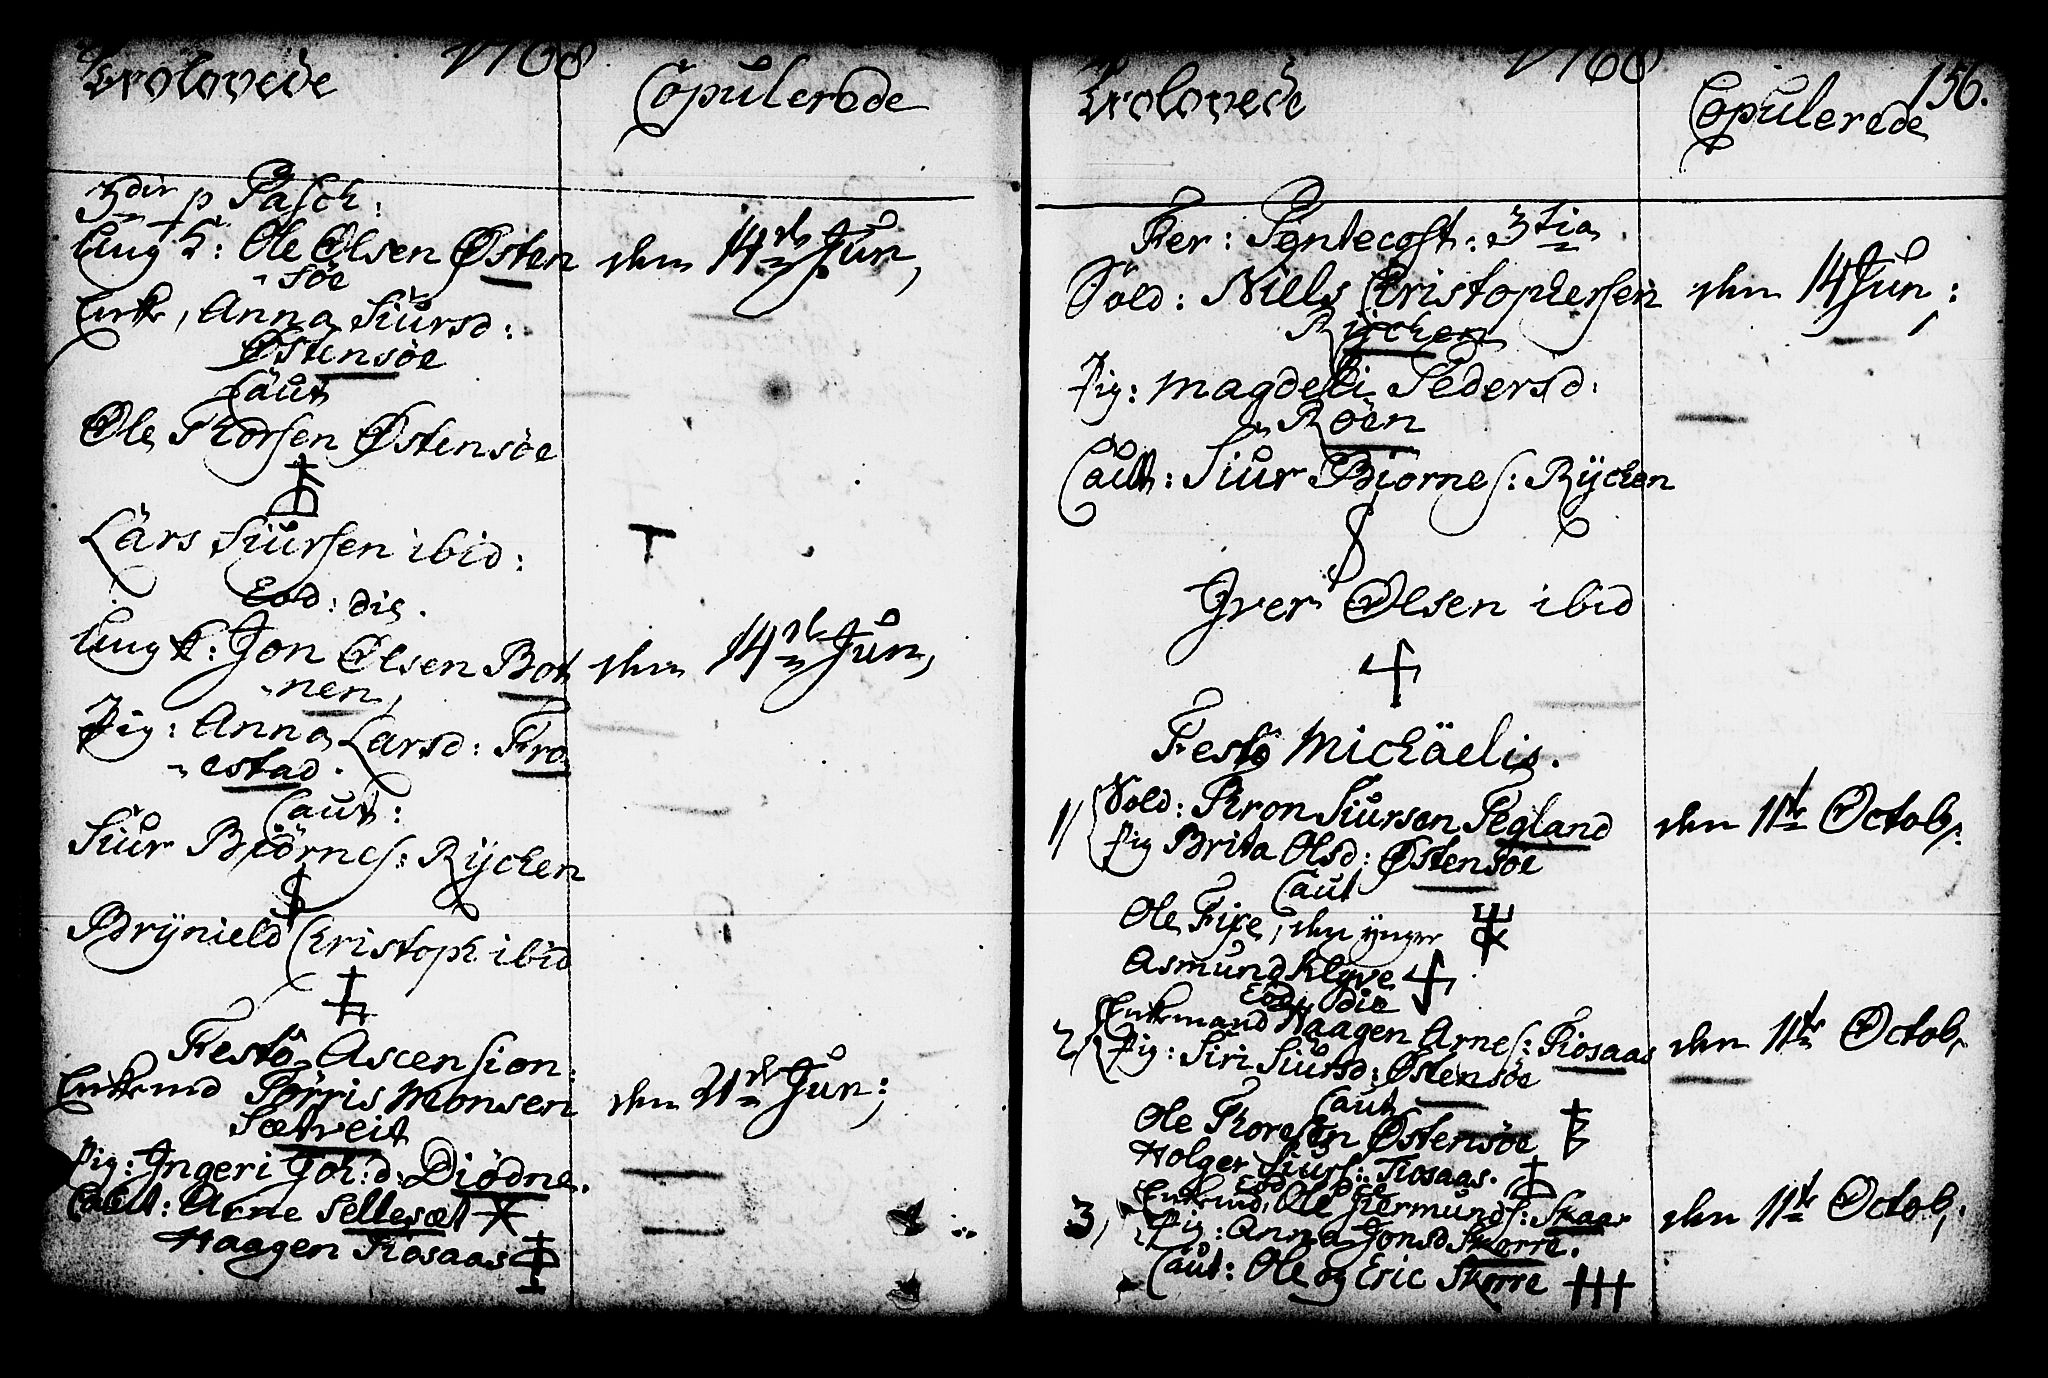 Trolovede 1768 Copulerede
3die p Pasch:
Ung K: Ole Olsen Østen den 14de Jun,
-søe
Enke, Anna Siursd:
Østensøe
Caut
Ole Thorsen Østensøe
Lärs Siursen ibid:
Eod: die.
Ung K: Jon Olsen Bot den 14de Jun,
-nen,
Pig: Anna Larsd: Fro
-estad.
Caut:
Siur Biörnes: Rÿchen
Brÿnield Christoph ibid
Festo Ascension:
Enkemd Törris Monsen den 21de Jun;
Sætveit
Pig: Ingeri Joh:d: Diödne.
Caut: Arne Sellesæt
Haagen Rosaas
Trolovede 1768 Copulerede 156.
Fer: Pentecost: 3tia
Sold: Niels Christophersen den 14 Jun;
Rÿchen
Pig: Magdeli Pedersd:
Röen
Caut: Siur Biornes: Rÿchen
Iver Olsen ibid
Festo Michäelis.
1/ Sold: Thron Siursen Tegland den 11te Octob:
Pig Brita Olsd: Østensöe
Caut
Ole Fixe, den ÿnger
Asmund Klyve
Eod die
2/ Enkemand Haagen Arnes: Rosaas den 11te Octob,
Pig: Siri Siursd: Østensöe
Caut
Ole Thoresen Østensöe
Holger Siurs: Rosaas.
Eod Die
3, Enkemd, Ole Germunds: Skaar den 11te Octob,
Pig: Anna Jonsd Skorre.
Caut: Ole og Eric Skorre